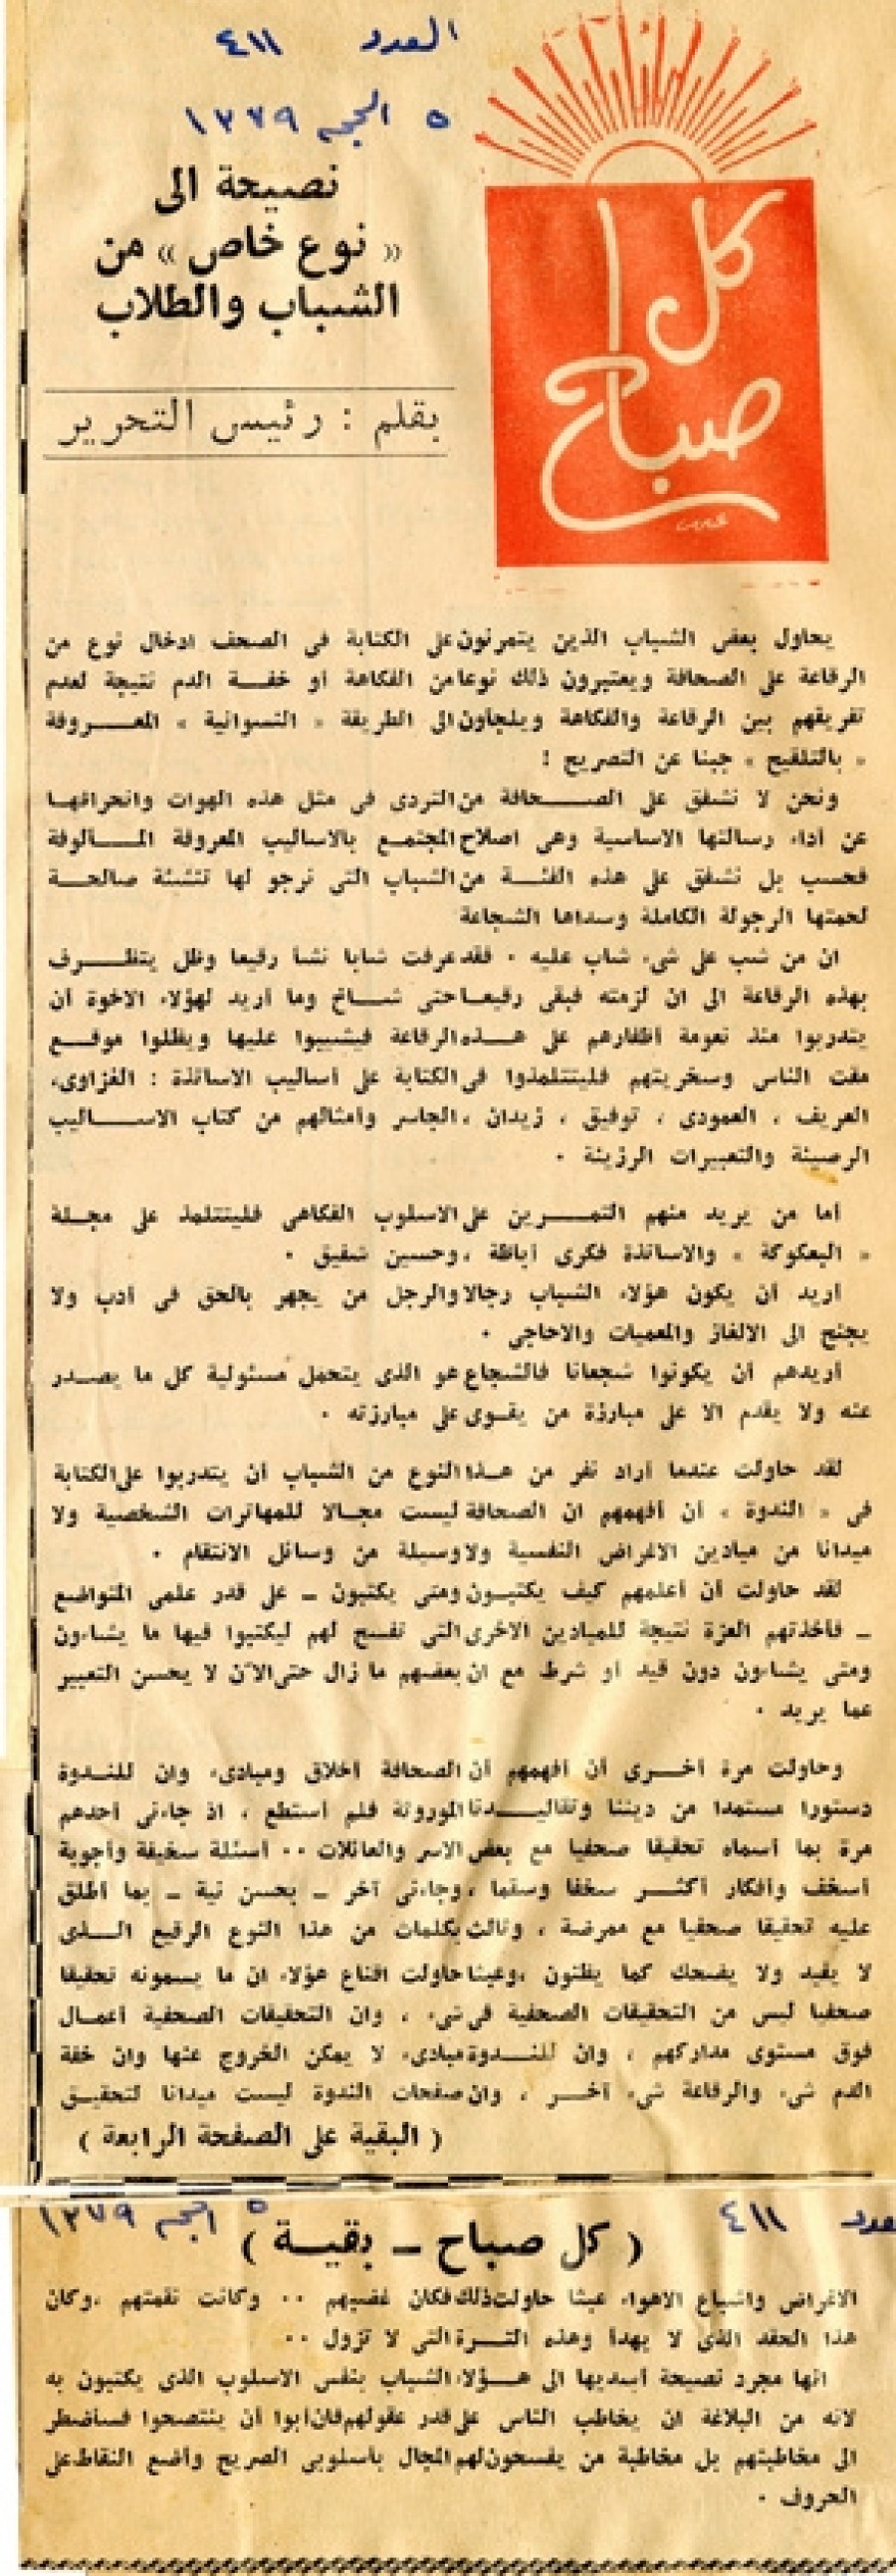 العدد ٤١١
٥ الحجه ١٣٧٩
كل صباح
نصيحة الى
« نوع خاص » من
الشباب والطلاب
بقلم : رئيس التحرير
يحاول بعض الشباب الذين يتمرنون على الكتابة فى الصحف ادخال نوع من
الرقاعة على الصحافة ويعتبرون ذلك نوعا من الفكاهة أو خفــة الدم نتيجة لعدم
تفريقهم بين الرقاعة والفكاهة ويلجأون الى الطريقة « النسوانية » المعـــروفة
« بالتلقيح » جبنا عن التصريح !
ونحن لا نشفق على الصـــحافة من التردى فى مثل هذه الهوات وانحرافهـا
عن أداء رسالتها الاساسية وهى اصلاح المجتمـع بالاساليب المعروفة المـــألوفة
فحسب بل نشفق على هذه الفئــة من الشباب التى نرجو لها تنشئة صالحــة
لحمتها الرجولة الكاملة وسداها الشجاعة
ان من شب على شىء شاب عليه . فقد عرفت شابا نشأ رقيعا وظل يتظــرف
بهذه الرقاعة الى ان لزمته فبقى رقيعـا حتى شـــاخ وما أريد لهؤلاء الاخوة أن
يتدربوا منذ نعومة أظفارهم على هـــذه الرقاعة فيشيبوا عليها ويظلوا موضــع
مقت الناس وسخريتهم فليتتلمذوا فى الكتابة على أساليب الاساتذة : الغزاوى،
العريف ، العمودى ، توفيق ، زيدان ، الجاسر وأمثالهم من كتاب الاســـاليب
الرصينة والتعبيرات الرزينة .
أما من يريد منهم التمـــرين على الاسلوب الفكاهى فليتتلمذ على مجـلة
« البعكوكة » والاساتذة فكرى أباظة ، وحسين شفيق .
أريد أن يكون هؤلاء الشباب رجالا والرجل من يجهر بالحق فى أدب ولا
يجنح الى الالغاز والمعميات والاحاجى .
أريدهم أن يكونوا شجعانا فالشجاع هو الذى يتحمل مسئولية كل ما يصــدر
عنه ولا يقدم الا على مبارزة من يقـوى على مبارزته .
لقد حاولت عندما أراد نفر من هـذا النوع من الشباب أن يتدربوا على الكتابة
فى « الندوة » أن أفهمهم ان الصحافة ليست مجـالا للمهاترات الشخصية ولا
ميدانا من ميادين الاغراض النفسية ولا وسيلة من وسائل الانتقام .
لقد حاولت أن أعلمهم كيف يكتبـون ومتى يكتبون ــ على قدر علمى المتواضع
ــ فأخذتهم العزة نتيجة للميادين الاخرى التى تفسح لهم ليكتبوا فيها ما يشاءون
ومتى يشاءون دون قيد أو شرط مع ان بعضهم ما زال حتى الآن لا يحسن التعبير
عما يريد .
وحاولت مرة أخــرى أن أفهمهم أن الصحافة أخلاق ومبادىء وان للنـدوة
دستورا مستمدا من ديننا وتقاليـــدنا الموروثة فلم أستطع ، اذ جاءنى أحدهم
مرة بما أسماه تحقيقا صحفيا مع بعض الاسر والعائلات .. أسئلة سخيفة وأجوبة
أسخف وأفكار أكثـــر سخفا وسقما ، وجاءنى آخر ــ بحسن نية ــ بما أطلق
عليه تحقيقا صحفيا مع ممرضة ، وثالث بكلمات من هذا النوع الرقيع الـــذى
لا يفيد ولا يضحك كما يظنون ، وعبثا حاولت اقناع هؤلاء ان ما يسمونه تحقيقا
صحفيا ليس من التحقيقات الصحفية فى شىء ، وان التحقيقات الصحفية أعمـال
فوق مستوى مداركهم ، وان للنــدوة مبادىء لا يمكن الخروج عنها وان خفة
الدم شىء والرقاعة شىء آخـــر ، وان صفحات الندوة ليست ميدانا لتحقيــق
( البقية على الصفحة الرابعة )
عدد ٤١١ ٥ الحجه ١٣٧٩
( كل صباح ــ بقيــة )
الاغراض واشباع الاهواء عبثا حاولت ذلك فكان غضبهم .. وكانت نقمتهم ، وكان
هذا الحقد الذى لا يهدأ وهذه الثـــرة التى لا تزول ..
انها مجرد نصيحة أسديها الى هـــؤلاء الشباب بنفس الاسلوب الذى يكتبون به
لانه من البلاغة ان يخاطب الناس على قدر عقولهم فان أبوا أن ينتصحوا فسأضطر
الى مخاطبتهم بل مخاطبة من يفسحون لهم المجال بأسلوبى الصريح وأضع النقاط على
الحروف .